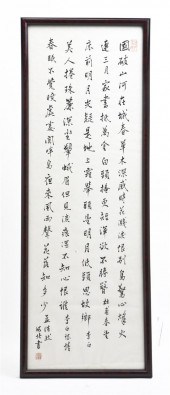 國破山河在城春草木深感時花濺淚恨別鳥驚心烽火
連三月家書抵萬金白頭搔更短渾欲不勝簪 杜甫春望
床前明月光疑是地上霜舉頭望明月低頭思故鄉 李白
美人捲珠簾深坐顰蛾眉但見淚痕濕不知心恨誰 李白怨情
春眠不覺曉處處聞啼鳥夜來風雨聲花落知多少 孟浩然